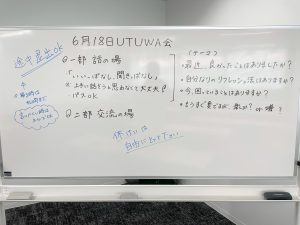 6月18日UTUWA会
途中退出OK
◎一部 話の場
「いいっぱなし、聞きっぱなし」
※上手に話そうと思わなくて大丈夫
パスOK
◎二部 交流の場
休けいは
自由にとって下さい
(テーマ)
最近、良かったことはありましたか?
自分なりのリフレッシュ法はありますか?
今、困っていることはありますか?
もうすぐ夏ですが、